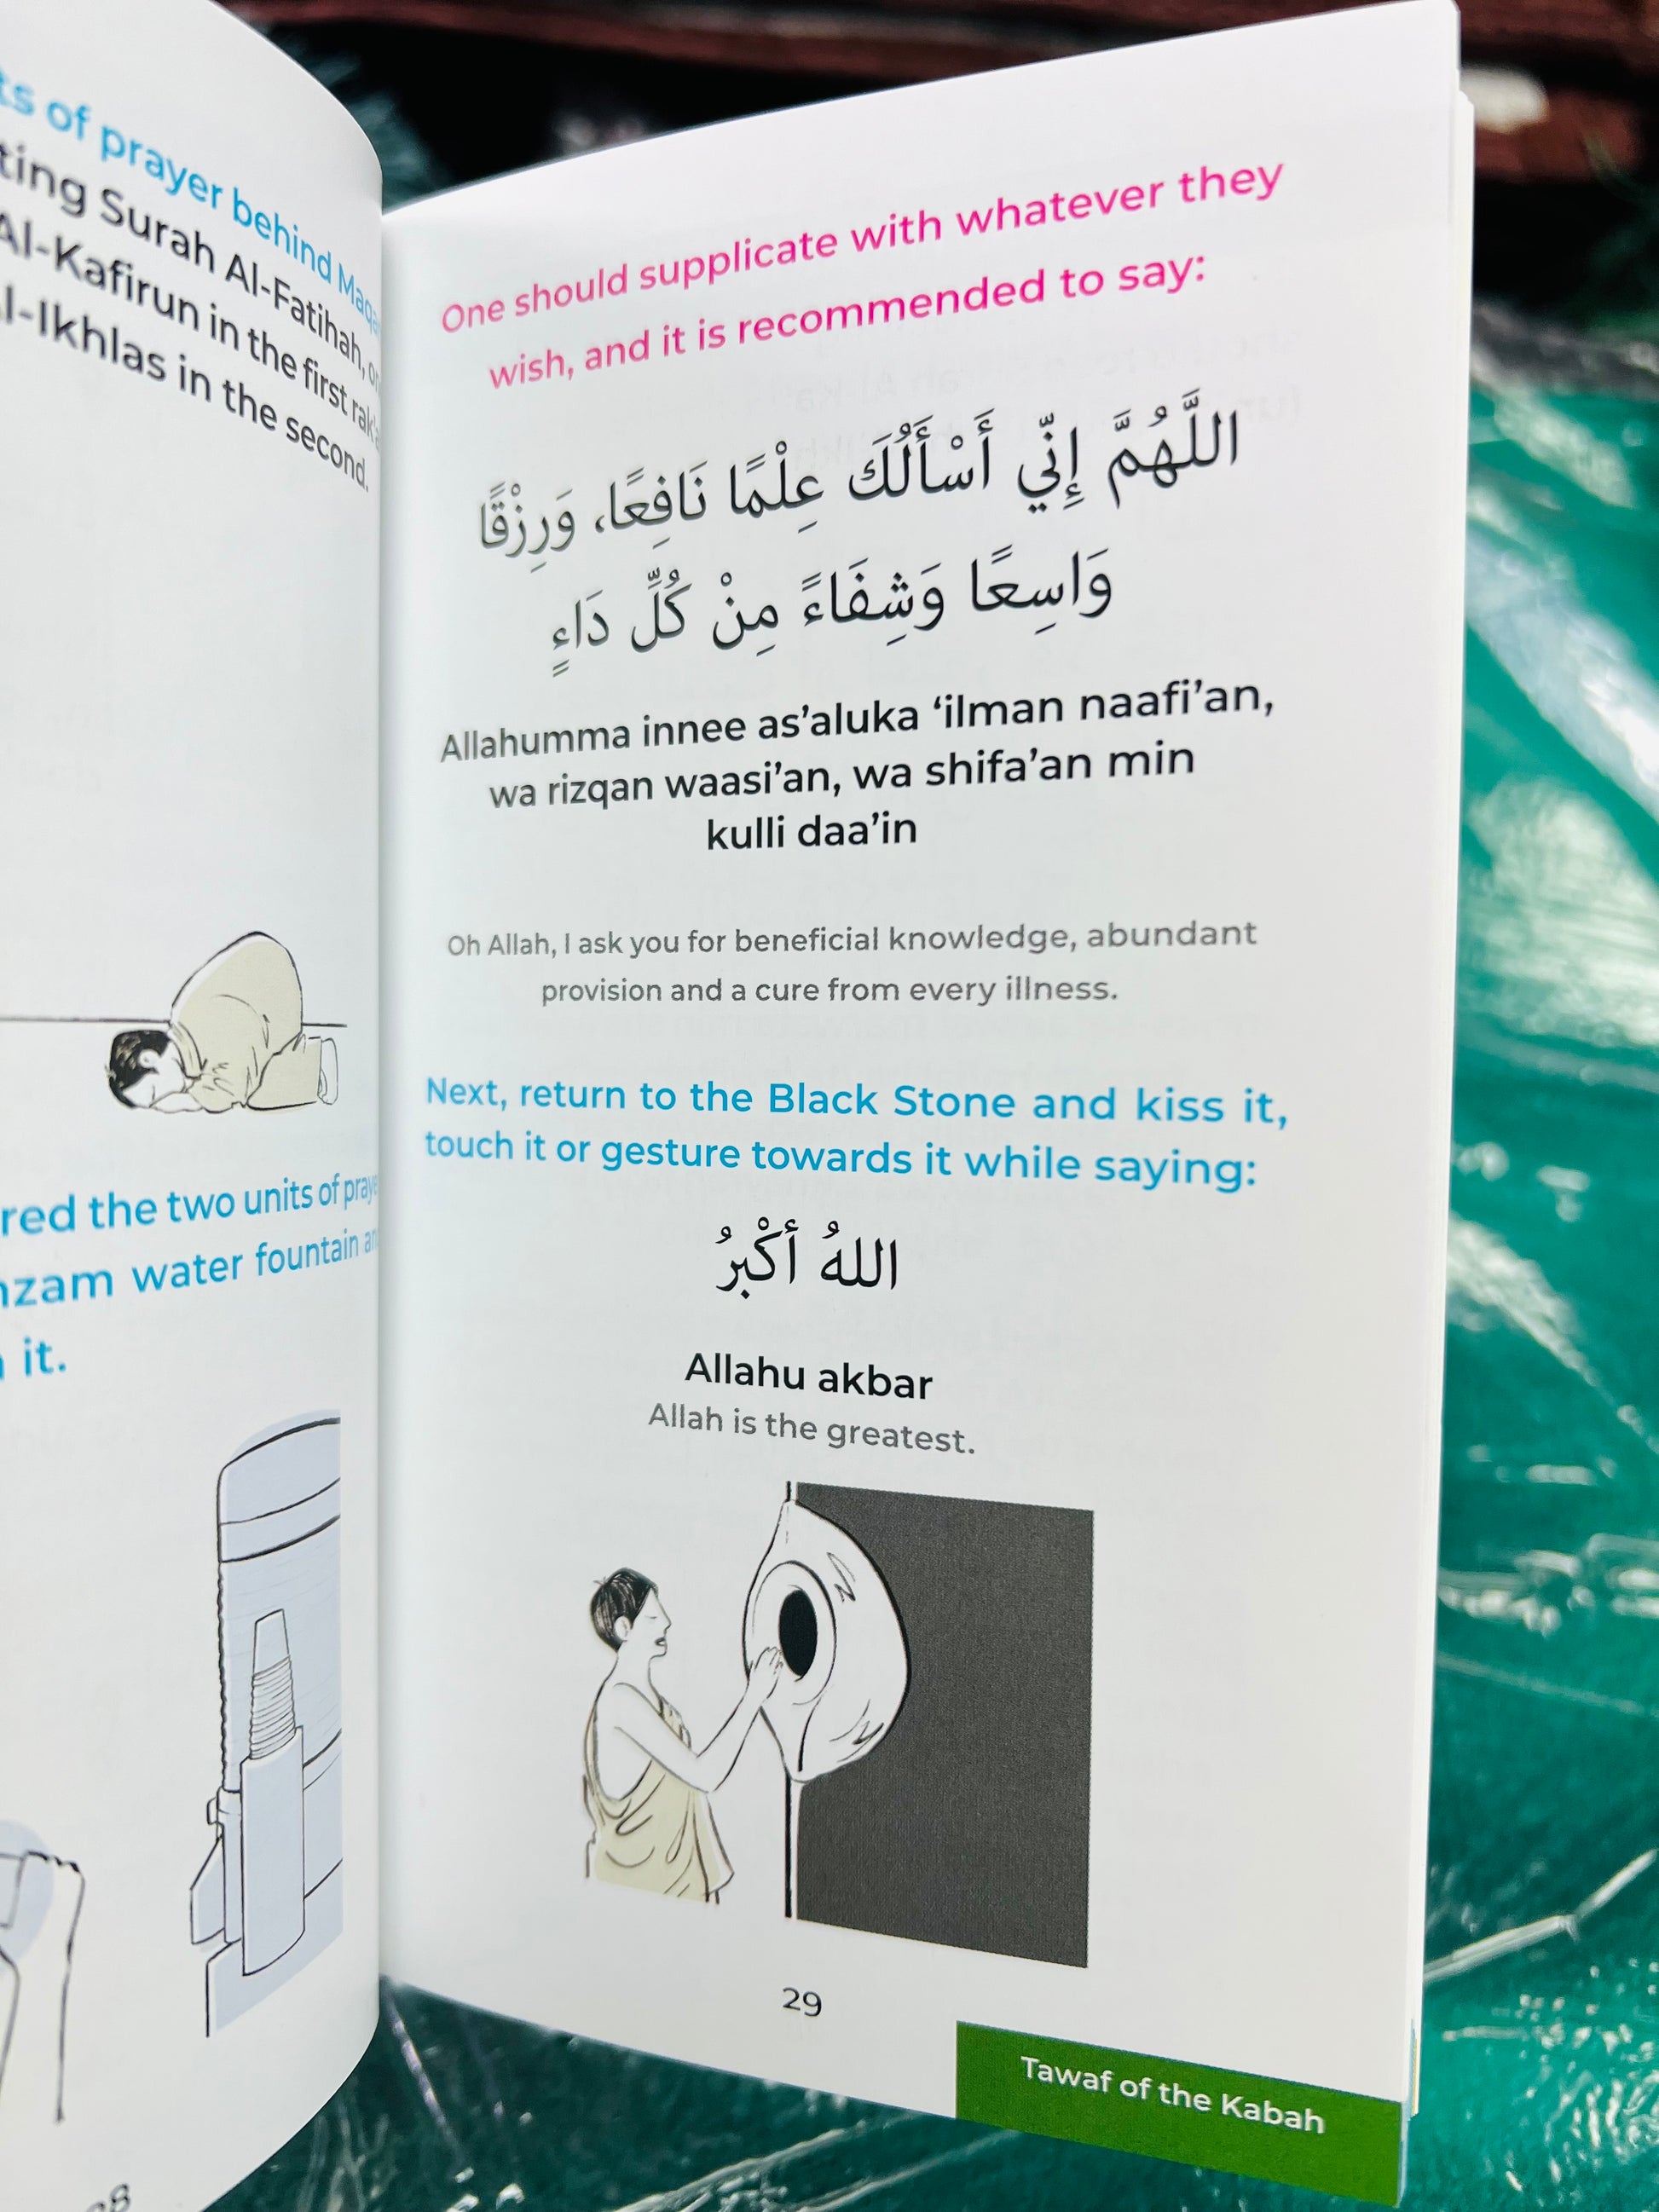 of prayer behind
Surah Al-Fatihah,
Al-Kafirun in the first
Al-Ikhlas in the second.
the two units of
water fountain
it.
One should supplicate with whatever they
wish, and it is recommended to say:
اللَّهُمَّ إِنِّي أَسْأَلُكَ عِلْمًا نَافِعًا، وَرِزْقًا
وَاسِعًا وَشِفَاءً مِنْ كُلِّ دَاءٍ
Allahumma innee as’aluka ‘ilman naafi’an,
wa rizqan waasi’an, wa shifa’an min
kulli daa’in
Oh Allah, I ask you for beneficial knowledge, abundant
provision and a cure from every illness.
Next, return to the Black Stone and kiss it,
touch it or gesture towards it while saying:
اللهُ أكْبرُ
Allahu akbar
Allah is the greatest.
29
Tawaf of the Kabah